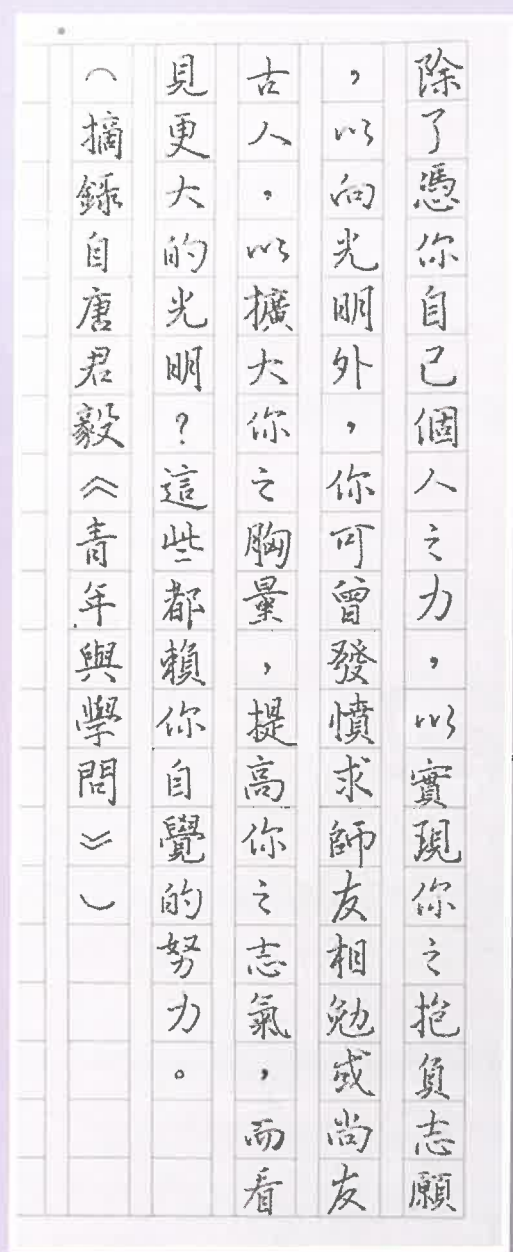 除了憑你自己個人之力，以實現你之抱負志願
，以向光明外，你可曾發憤求師友相勉或尚友
古人，以擴大你之胸量，提高你之志氣，而看
見更大的光明？這些都賴你自覺的努力。
（摘錄自唐君毅《青年與學問》）